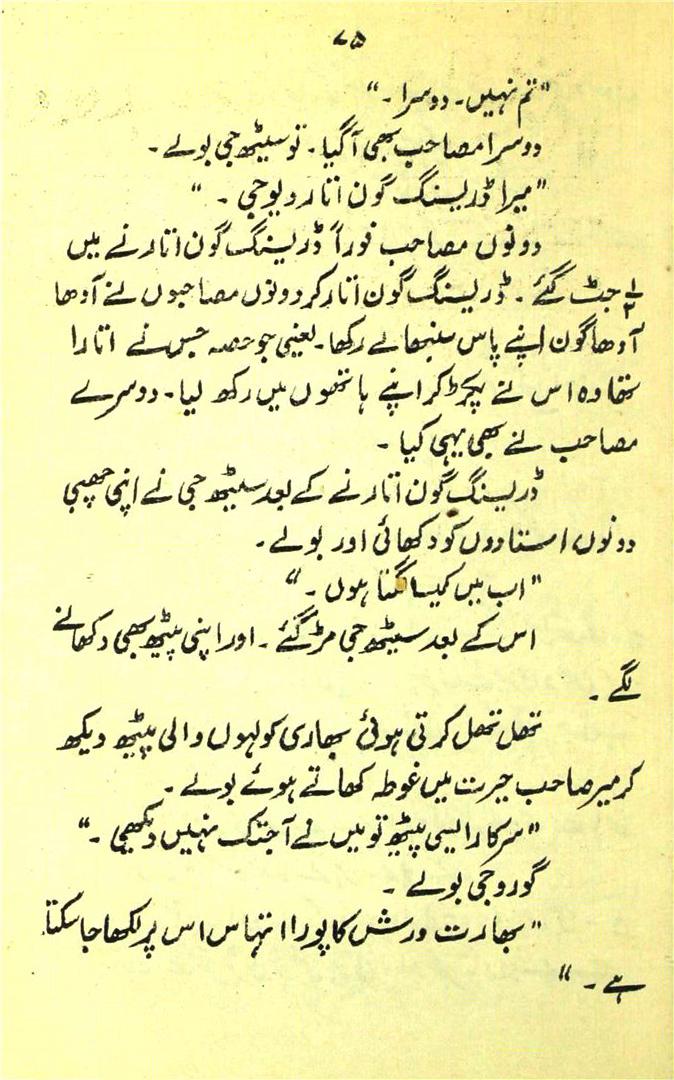 ۷۵
"تم نہیں۔ دوسرا۔"
دوسرا مصاحب بھی آگیا۔ تو سیٹھ جی بولے۔
"میرا ڈریسنگ گون اتار دیو جی۔"
دونوں مصاحب فوراً ڈریسنگ گون اتارنے میں
جٹ گئے۔ ڈریسنگ گون اتار کر دونوں مصاحبوں نے آدھا
آدھا گون اپنے پاس سنبھالے رکھا۔ یعنی جو حصہ جس نے اتارا
تھا وہ اس نے پکڑ کر اپنے ہاتھوں میں رکھ لیا۔ دوسرے
مصاحب نے بھی یہی کیا۔
ڈریسنگ گون اتارنے کے بعد سیٹھ جی نے اپنی چھبی
دونوں استادوں کو دکھائی اور بولے۔
"اب میں کیسا لگتا ہوں۔"
اس کے بعد سیٹھ جی مڑ گئے۔ اور اپنی پیٹھ بھی دکھانے
لگے۔
تھل تھل کرتی ہوئی بھاری کولہوں والی پیٹھ دیکھ
کر میر صاحب حیرت میں غوطہ کھاتے ہوئے بولے۔
"سرکار ایسی پیٹھ تو میں نے آجتک نہیں دیکھی۔"
گورو جی بولے۔
"بھارت ورش کا پورا اتہاس اس پر لکھا جا سکتا
ہے۔"